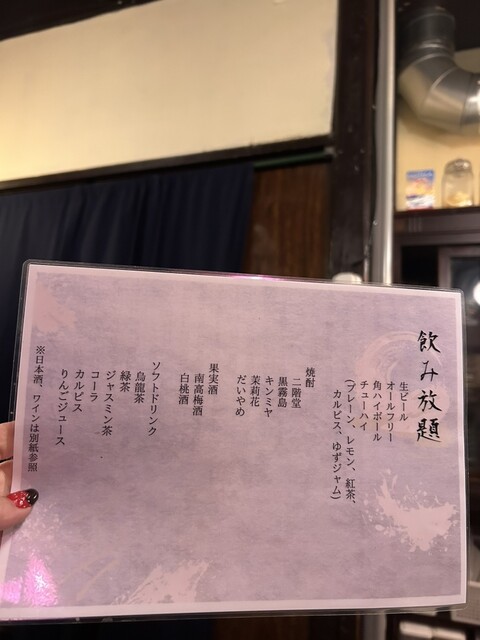 飲み放題
生ビール
オールフリー
角ハイボール
チューハイ
(プレーン、レモン、紅茶、
カルピス、ゆずジャム)
焼酎
二階堂
黒霧島
キンミヤ
茉莉花
だいやめ
果実酒
南高梅酒
白桃酒
ソフトドリンク
烏龍茶
緑茶
ジャスミン茶
コーラ
カルピス
りんごジュース
※日本酒、ワインは別紙参照